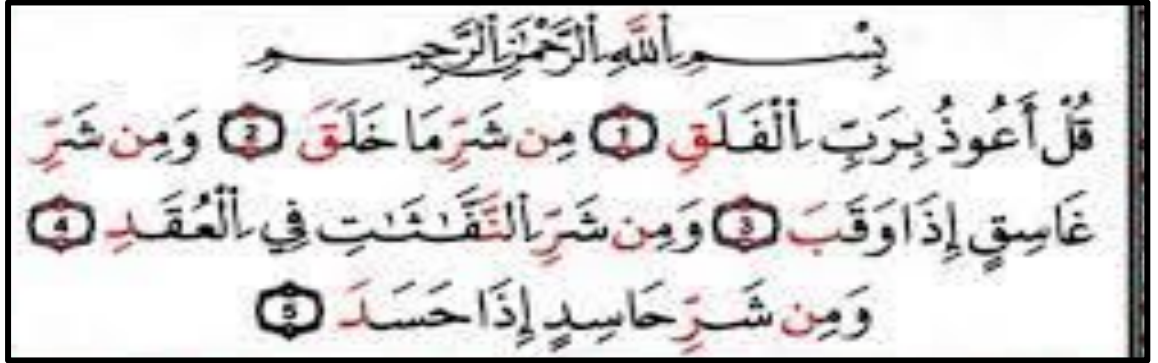 بِسْمِ اِ۬للَّهِ اِ۬لرَّحْمَٰنِ اِ۬لرَّحِيمِ
قُلْ أَعُوذُ بِرَبِّ اِ۬لْفَلَقِ 1 مِن شَرِّ مَا خَلَقَ 2 وَمِن شَرِّ
غَاسِقٍ إِذَا وَقَبَ 3 وَمِن شَرِّ اِ۬لنَّفَّٰثَٰتِ فِي اِ۬لْعُقَدِ 4
وَمِن شَرِّ حَاسِدٍ إِذَا حَسَدَ 5